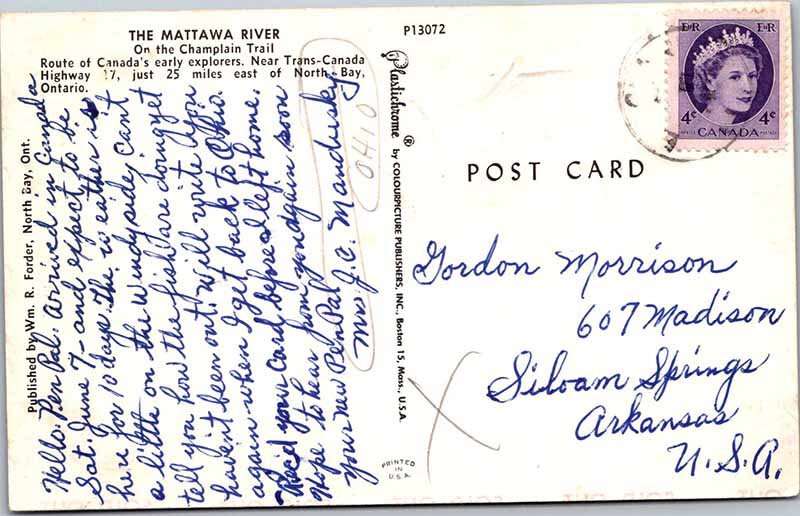 THE MATTAWA RIVER
On the Champlain Trail
Route of Canada's early explorers. Near Trans-Canada
Highway 17, just 25 miles east of North Bay,
Ontario.
Published by Wm. R. Forder, North Bay, Ont.
Hello. Pen Pal. Arrived in Canada
Sat. June 7 - and expect to be
here for 10 days. The weather is
a little on the windy side, can't
tell you how the fish are doing yet
haven't been out. Will write you
again when I get back to Ohio.
Rec'd your Card before I left home.
Hope to hear from you again soon
Your new Pen Pal
Mrs. J. C. Mandusky
OHIO
P13072
Plastichrome ® by COLOURPICTURE PUBLISHERS, INC., Boston 15, Mass., U.S.A.
PRINTED
IN
U.S.A.
POST CARD
EIIR EIIR
4¢ 4¢
POSTES CANADA POSTAGE
Gordon Morrison
607 Madison
Siloam Springs
Arkansas
U.S.A.